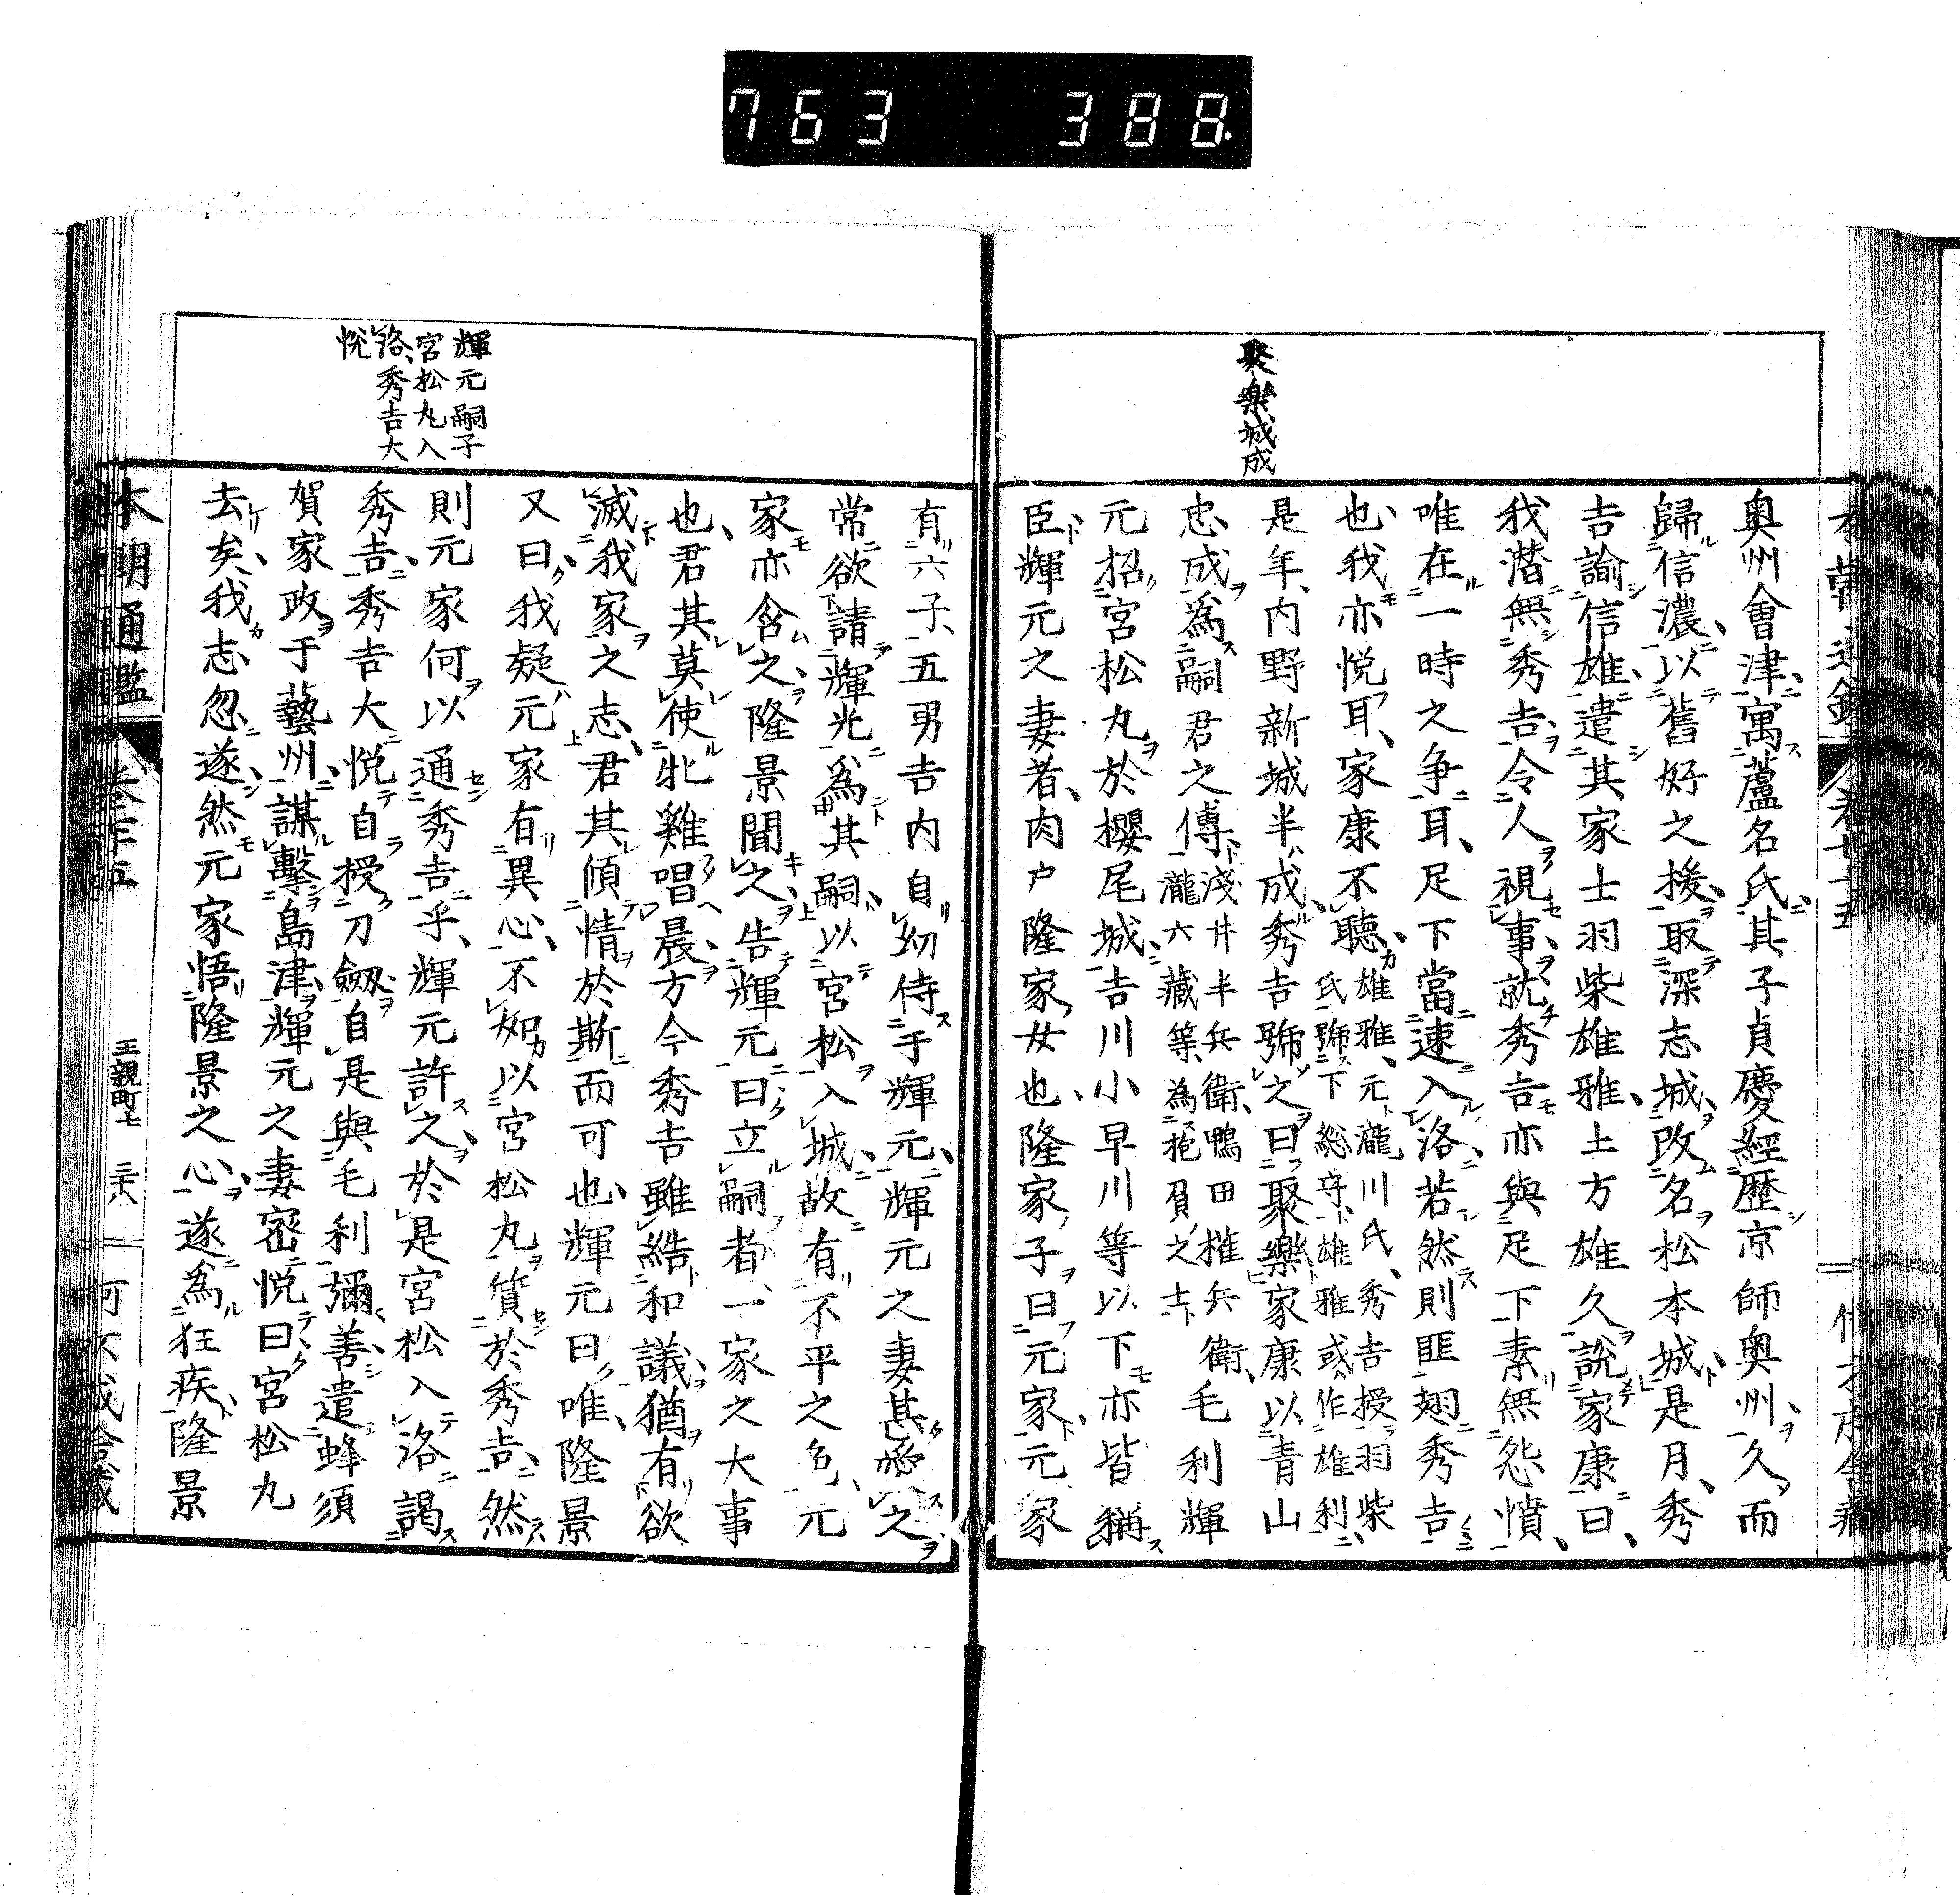 763 388.
聚樂城成
奧州會津寓蘆名氏其子貞慶經歷京師奧州久而
歸信濃以舊好之援取深志城改名松本城是月秀
吉諭信雄遣其家士羽柴雄雅土方雄久說家康曰
我潛無秀吉令人視事就秀吉亦與足下素無怨憤
唯在一時之争耳足下當速入洛若然則匪翅秀吉
也我亦悅耳家康不聽雄雅元瀧川氏秀吉授羽柴氏號下総守雄雅或作雄利
是年内野新城半成秀吉號之曰聚樂家康以青山
忠成為嗣君之傅淺井半兵衛鴨田権兵衛瀧六藏等為抱負之士毛利輝
元招宮松丸於櫻尾城吉川小早川等以下亦皆稱
臣輝元之妻者肉戶隆家女也隆家子曰元家元家
輝元嗣子
宮松丸入
洛秀吉大
悅
有六子五男吉内自幼侍于輝元輝元之妻甚愛之
常欲請輝元為其嗣以宮松入城故有不平之色元
家亦含之隆景聞之告輝元曰立嗣者一家之大事
也君其莫使牝雞唱晨方今秀吉雖結和議猶有欲
滅我家之志君其傾情於斯而可也輝元曰唯隆景
又曰我疑元家有異心不如以宮松丸質於秀吉然
則元家何以通秀吉乎輝元許之於是宮松入洛謁
秀吉秀吉大悅自授刀劔自是與毛利彌善遣蜂須
賀家政于藝州謀擊島津輝元之妻密悅曰宮松丸
去矣我志忽遂然元家悟隆景之心遂為狂疾隆景
本朝通鑑